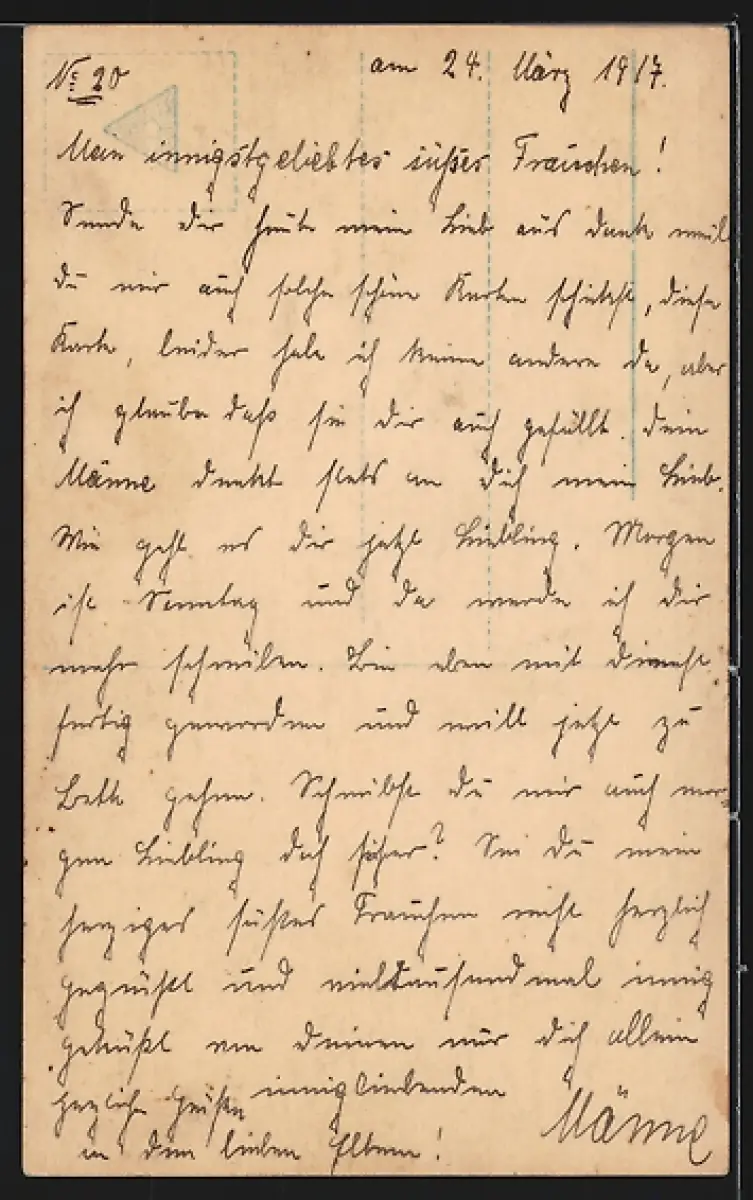 № 20 am 24. März 1917.
Mein innigstgeliebtes süßes Frauchen!
Sende dir heute mein Lieb aus dank weil
du mir auch solche schöne Karten schickst, diese
Karte, leider habe ich keine andere da, aber
ich glaube daß sie dir auch gefällt. Dein
Männe denkt stets an dich mein Lieb.
Wie geht es dir jetzt Liebling. Morgen
ist Sonntag und da werde ich dir
mehr schreiben. Bin eben mit Dienst
fertig geworden und will jetzt zu
Bett gehen. Schreibst du mir auch mor-
gen Liebling doch sicher? Sei du mein
herziges süßes Frauchen recht herzlich
gegrüßt und vieltausendmal innig
geküßt von deinen nur dich allein
innigliebenden
Männe
herzliche Grüße
an den lieben Eltern!